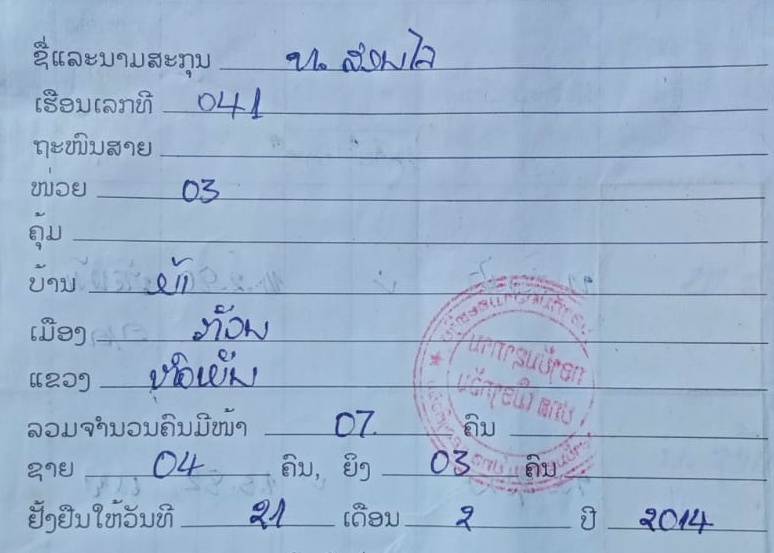 ຊື່ແລະນາມສະກຸນ ນ. ສົມໃຈ
ເຮືອນເລກທີ 041
ຖະໜົນສາຍ
ໜ່ວຍ 03
ຄຸ້ມ
ບ້ານ
ເມືອງ ກ້ວມ
ແຂວງ ຫົວພັນ
ລວມຈຳນວນຄົນມີໜ້າ 07 ຄົນ
ຊາຍ 04 ຄົນ, ຍິງ 03 ຄົນ
ຢັ້ງຢືນໃຫ້ວັນທີ 21 ເດືອນ 2 ປີ 2014